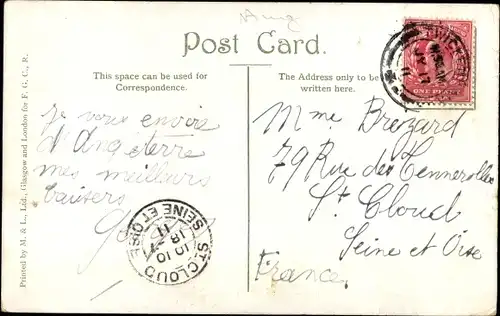 Post Card.
This space can be used for
Correspondence.
The Address only to be
written here.
ONE PENNY
Printed by M. & L., Ltd., Glasgow and London for F. G. C., R.
je vous envois
d'Angleterre
mes meilleurs
baisers
Mme Brezard
79 Rue des Tennerolles
St. Cloud
Seine et Oise
France.
ST CLOUD
SEINE ET OISE